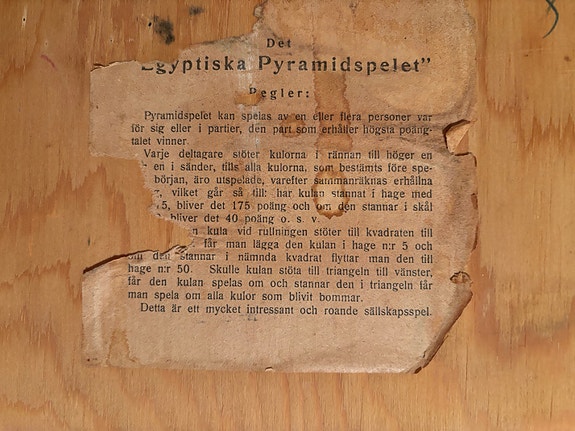 Det
Egyptiska Pyramidspelet”
Regler:
Pyramidspelet kan spelas av en eller flera personer var
för sig eller i partier, den part som erhåller högsta poäng-
talet vinner.
Varje deltagare stöter kulorna i rännan till höger en
en i sänder, tills alla kulorna, som bestämts före spe-
början, äro utspelade, varefter sammanräknas erhållna
, vilket går så till: har kulan stannat i hage med
5, bliver det 175 poäng och om den stannar i skål
bliver det 40 poäng o. s. v.
n kula vid rullningen stöter till kvadraten till
får man lägga den kulan i hage n:r 5 och
om den stannar i nämnda kvadrat flyttar man den till
hage n:r 50. Skulle kulan stöta till triangeln till vänster,
får den kulan spelas om och stannar den i triangeln får
man spela om alla kulor som blivit bommar.
Detta är ett mycket intressant och roande sällskapsspel.